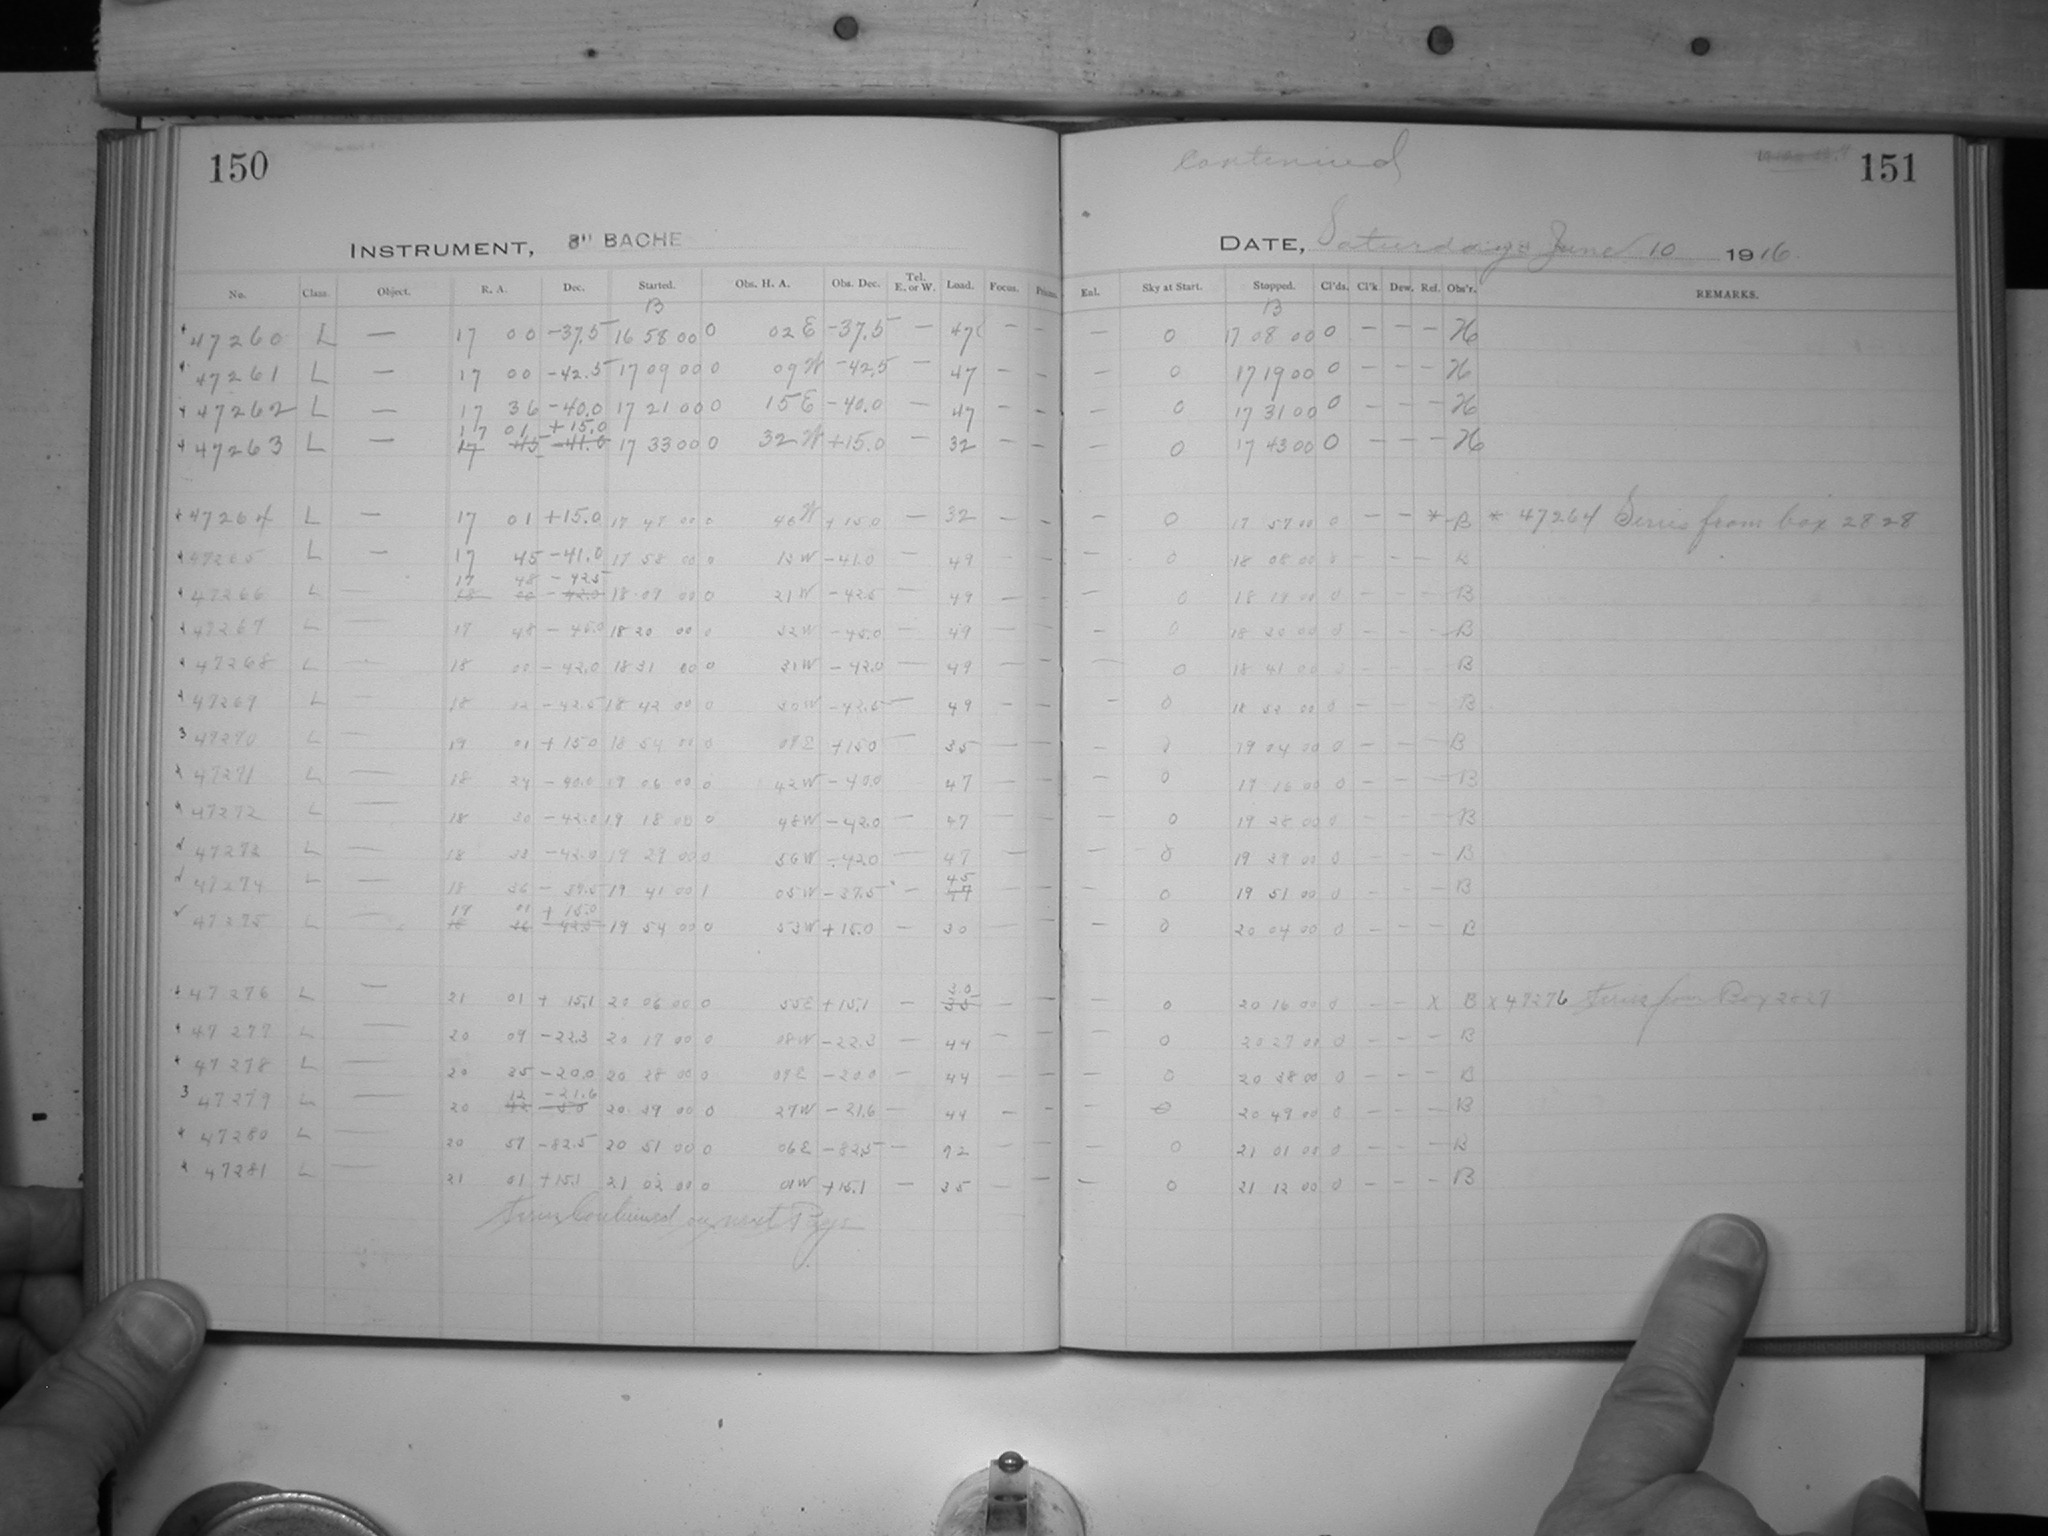 150
continued
151
INSTRUMENT, 8" BACHE
DATE, Saturday June 10 1916
No. Class. Object. R. A. Dec. Started. Obs. H. A. Obs. Dec. Tel. E. or W. Load. Focus. Prisms. Enl. Sky at Start. Stopped. Cl'ds. Cl'k Dew. Ref. Obs'r. REMARKS.
B B
47260 L — 17 00 -37.5 16 58 00 0 02 E -37.5 — 47 — — — 0 17 08 00 0 — — — H
47261 L — 17 00 -42.5 17 09 00 0 09 W -42.5 — 47 — — — 0 17 19 00 0 — — — H
47262 L — 17 36 -40.0 17 21 00 0 15 E -40.0 — 47 — — — 0 17 31 00 0 — — — H
17 01 +15.0
47263 L — 17 45 -41.0 17 33 00 0 32 W +15.0 — 32 — — — 0 17 43 00 0 — — — H
47264 L — 17 01 +15.0 17 47 00 0 46 W +15.0 — 32 — — — 0 17 57 00 0 — — * B * 47264 Series from box 2828
47265 L — 17 45 -41.0 17 58 00 0 13 W -41.0 49 — — — 0 18 08 00 0 — — — B
17 48 -42.5
47266 L — 18 00 -42.0 18 09 00 0 21 W -42.5 — 49 — — — 0 18 19 00 0 — — — B
47267 L — 17 48 -45.0 18 20 00 0 32 W -45.0 — 49 — — — 0 18 30 00 0 — — — B
47268 L — 18 00 -42.0 18 31 00 0 31 W -42.0 — 49 — — — 0 18 41 00 0 — — — B
47269 L — 18 12 -42.5 18 42 00 0 30 W -42.5 — 49 — — — 0 18 52 00 0 — — — B
3 47270 L — 19 01 +15.0 18 54 00 0 07 E +15.0 — 35 — — — 0 19 04 00 0 — — — B
47271 L — 18 24 -40.0 19 06 00 0 42 W -40.0 — 47 — — — 0 19 16 00 0 — — — B
47272 L — 18 30 -42.0 19 18 00 0 48 W -42.0 — 47 — — — 0 19 28 00 0 — — — B
47273 L — 18 33 -42.0 19 29 00 0 56 W -42.0 — 47 — — — 0 19 39 00 0 — — — B
45
47274 L — 18 36 -37.5 19 41 00 1 05 W -37.5 — 47 — — — 0 19 51 00 0 — — — B
19 01 +15.0
47275 L — 18 36 -42.5 19 54 00 0 53 W +15.0 — 30 — — — 0 20 04 00 0 — — — B
30
47276 L — 21 01 +15.1 20 06 00 0 55 E +15.1 — 35 — — — 0 20 16 00 0 — — X B X 47276 Series from Box 2829
47277 L — 20 09 -22.3 20 17 00 0 08 W -22.3 — 44 — — — 0 20 27 00 0 — — — B
47278 L — 20 35 -20.0 20 28 00 0 07 E -20.0 — 44 — — — 0 20 38 00 0 — — — B
12 -21.6
3 47279 L — 20 42 20 39 00 0 27 W -21.6 — 44 — — — 0 20 49 00 0 — — — B
47280 L — 20 57 -82.5 20 51 00 0 06 E -82.5 — 92 — — — 0 21 01 00 0 — — — B
47281 L — 21 01 +15.1 21 02 00 0 01 W +15.1 — 35 — — — 0 21 12 00 0 — — — B
Series Continued on next Page